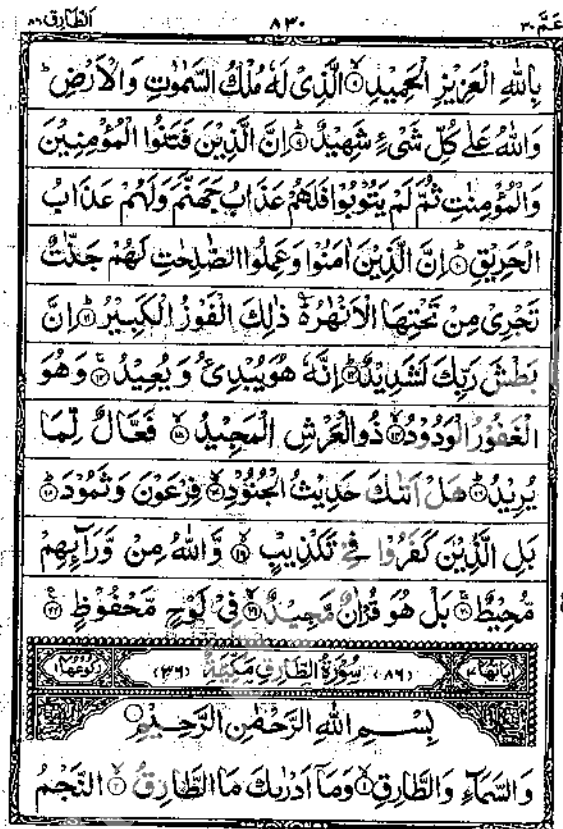 عَمَّ ٣٠ ٨٣٠ اَلطَّارِق ٨٦
بِاللّٰهِ الْعَزِيْزِ الْحَمِيْدِ ۙ﴿۸﴾ الَّذِىْ لَهٗ مُلْكُ السَّمٰوٰتِ وَالْاَرْضِ ؕ
وَاللّٰهُ عَلٰى كُلِّ شَىْءٍ شَهِيْدٌ ؕ﴿۹﴾ اِنَّ الَّذِيْنَ فَتَنُوا الْمُؤْمِنِيْنَ
وَالْمُؤْمِنٰتِ ثُمَّ لَمْ يَتُوْبُوْا فَلَهُمْ عَذَابُ جَهَنَّمَ وَلَهُمْ عَذَابُ
الْحَرِيْقِ ؕ﴿۱۰﴾ اِنَّ الَّذِيْنَ اٰمَنُوْا وَعَمِلُوا الصّٰلِحٰتِ لَهُمْ جَنّٰتٌ
تَجْرِىْ مِنْ تَحْتِهَا الْاَنْهٰرُ ۬ؕ ذٰلِكَ الْفَوْزُ الْكَبِيْرُ ؕ﴿۱۱﴾ اِنَّ
بَطْشَ رَبِّكَ لَشَدِيْدٌ ؕ﴿۱۲﴾ اِنَّهٗ هُوَ يُبْدِئُ وَيُعِيْدُ ۚ﴿۱۳﴾ وَهُوَ
الْغَفُوْرُ الْوَدُوْدُ ۙ﴿۱۴﴾ ذُو الْعَرْشِ الْمَجِيْدُ ۙ﴿۱۵﴾ فَعَّالٌ لِّمَا
يُرِيْدُ ؕ﴿۱۶﴾ هَلْ اَتٰىكَ حَدِيْثُ الْجُنُوْدِ ۙ﴿۱۷﴾ فِرْعَوْنَ وَثَمُوْدَ ؕ﴿۱۸﴾
بَلِ الَّذِيْنَ كَفَرُوْا فِىْ تَكْذِيْبٍ ۙ﴿۱۹﴾ وَّاللّٰهُ مِنْ وَّرَآئِهِمْ
مُّحِيْطٌ ۚ﴿۲۰﴾ بَلْ هُوَ قُرْاٰنٌ مَّجِيْدٌ ۙ﴿۲۱﴾ فِىْ لَوْحٍ مَّحْفُوْظٍ ﴿۲۲﴾
اٰيَاتُهَا ۱۷ (۸۶) سُوْرَةُ الطَّارِقِ مَكِّيَّةٌ (۳۶) رُكُوْعُهَا ۱
بِسْمِ اللّٰهِ الرَّحْمٰنِ الرَّحِيْمِ
وَالسَّمَآءِ وَالطَّارِقِ ۙ﴿۱﴾ وَمَاۤ اَدْرٰىكَ مَا الطَّارِقُ ۙ﴿۲﴾ النَّجْمُ